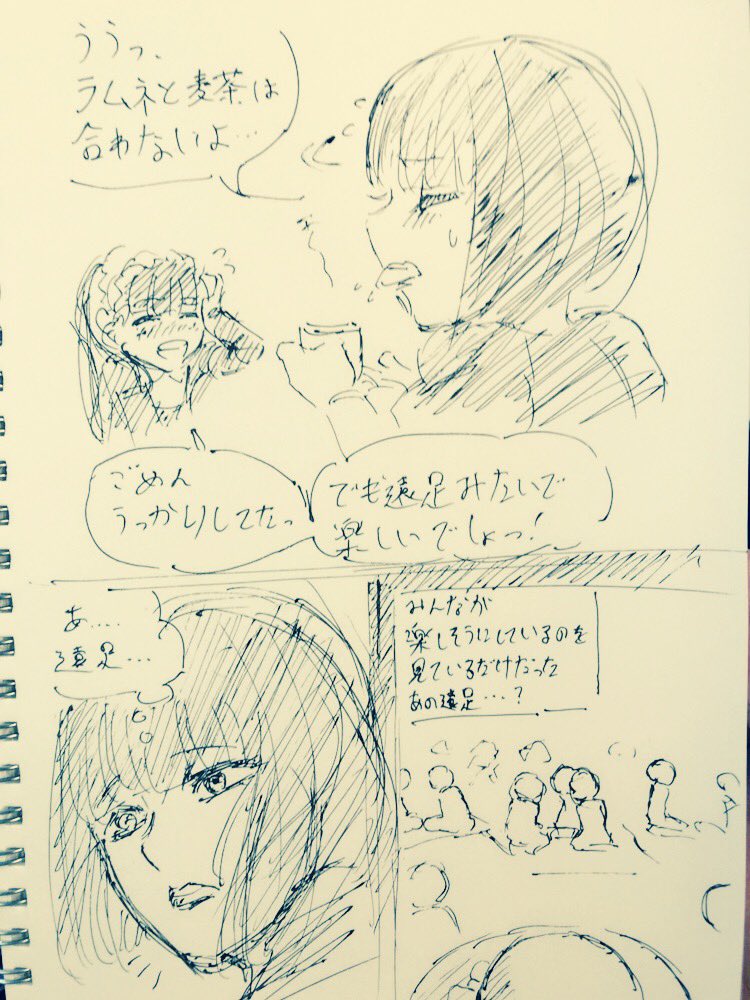 ううっ、
ラムネと麦茶は
合わないよ…
ごめん
うっかりしてたっ
でも遠足みたいで
楽しいでしょっ!
あ‥‥
遠足…
みんなが
楽しそうにしているのを
見ているだけだった
あの遠足…?